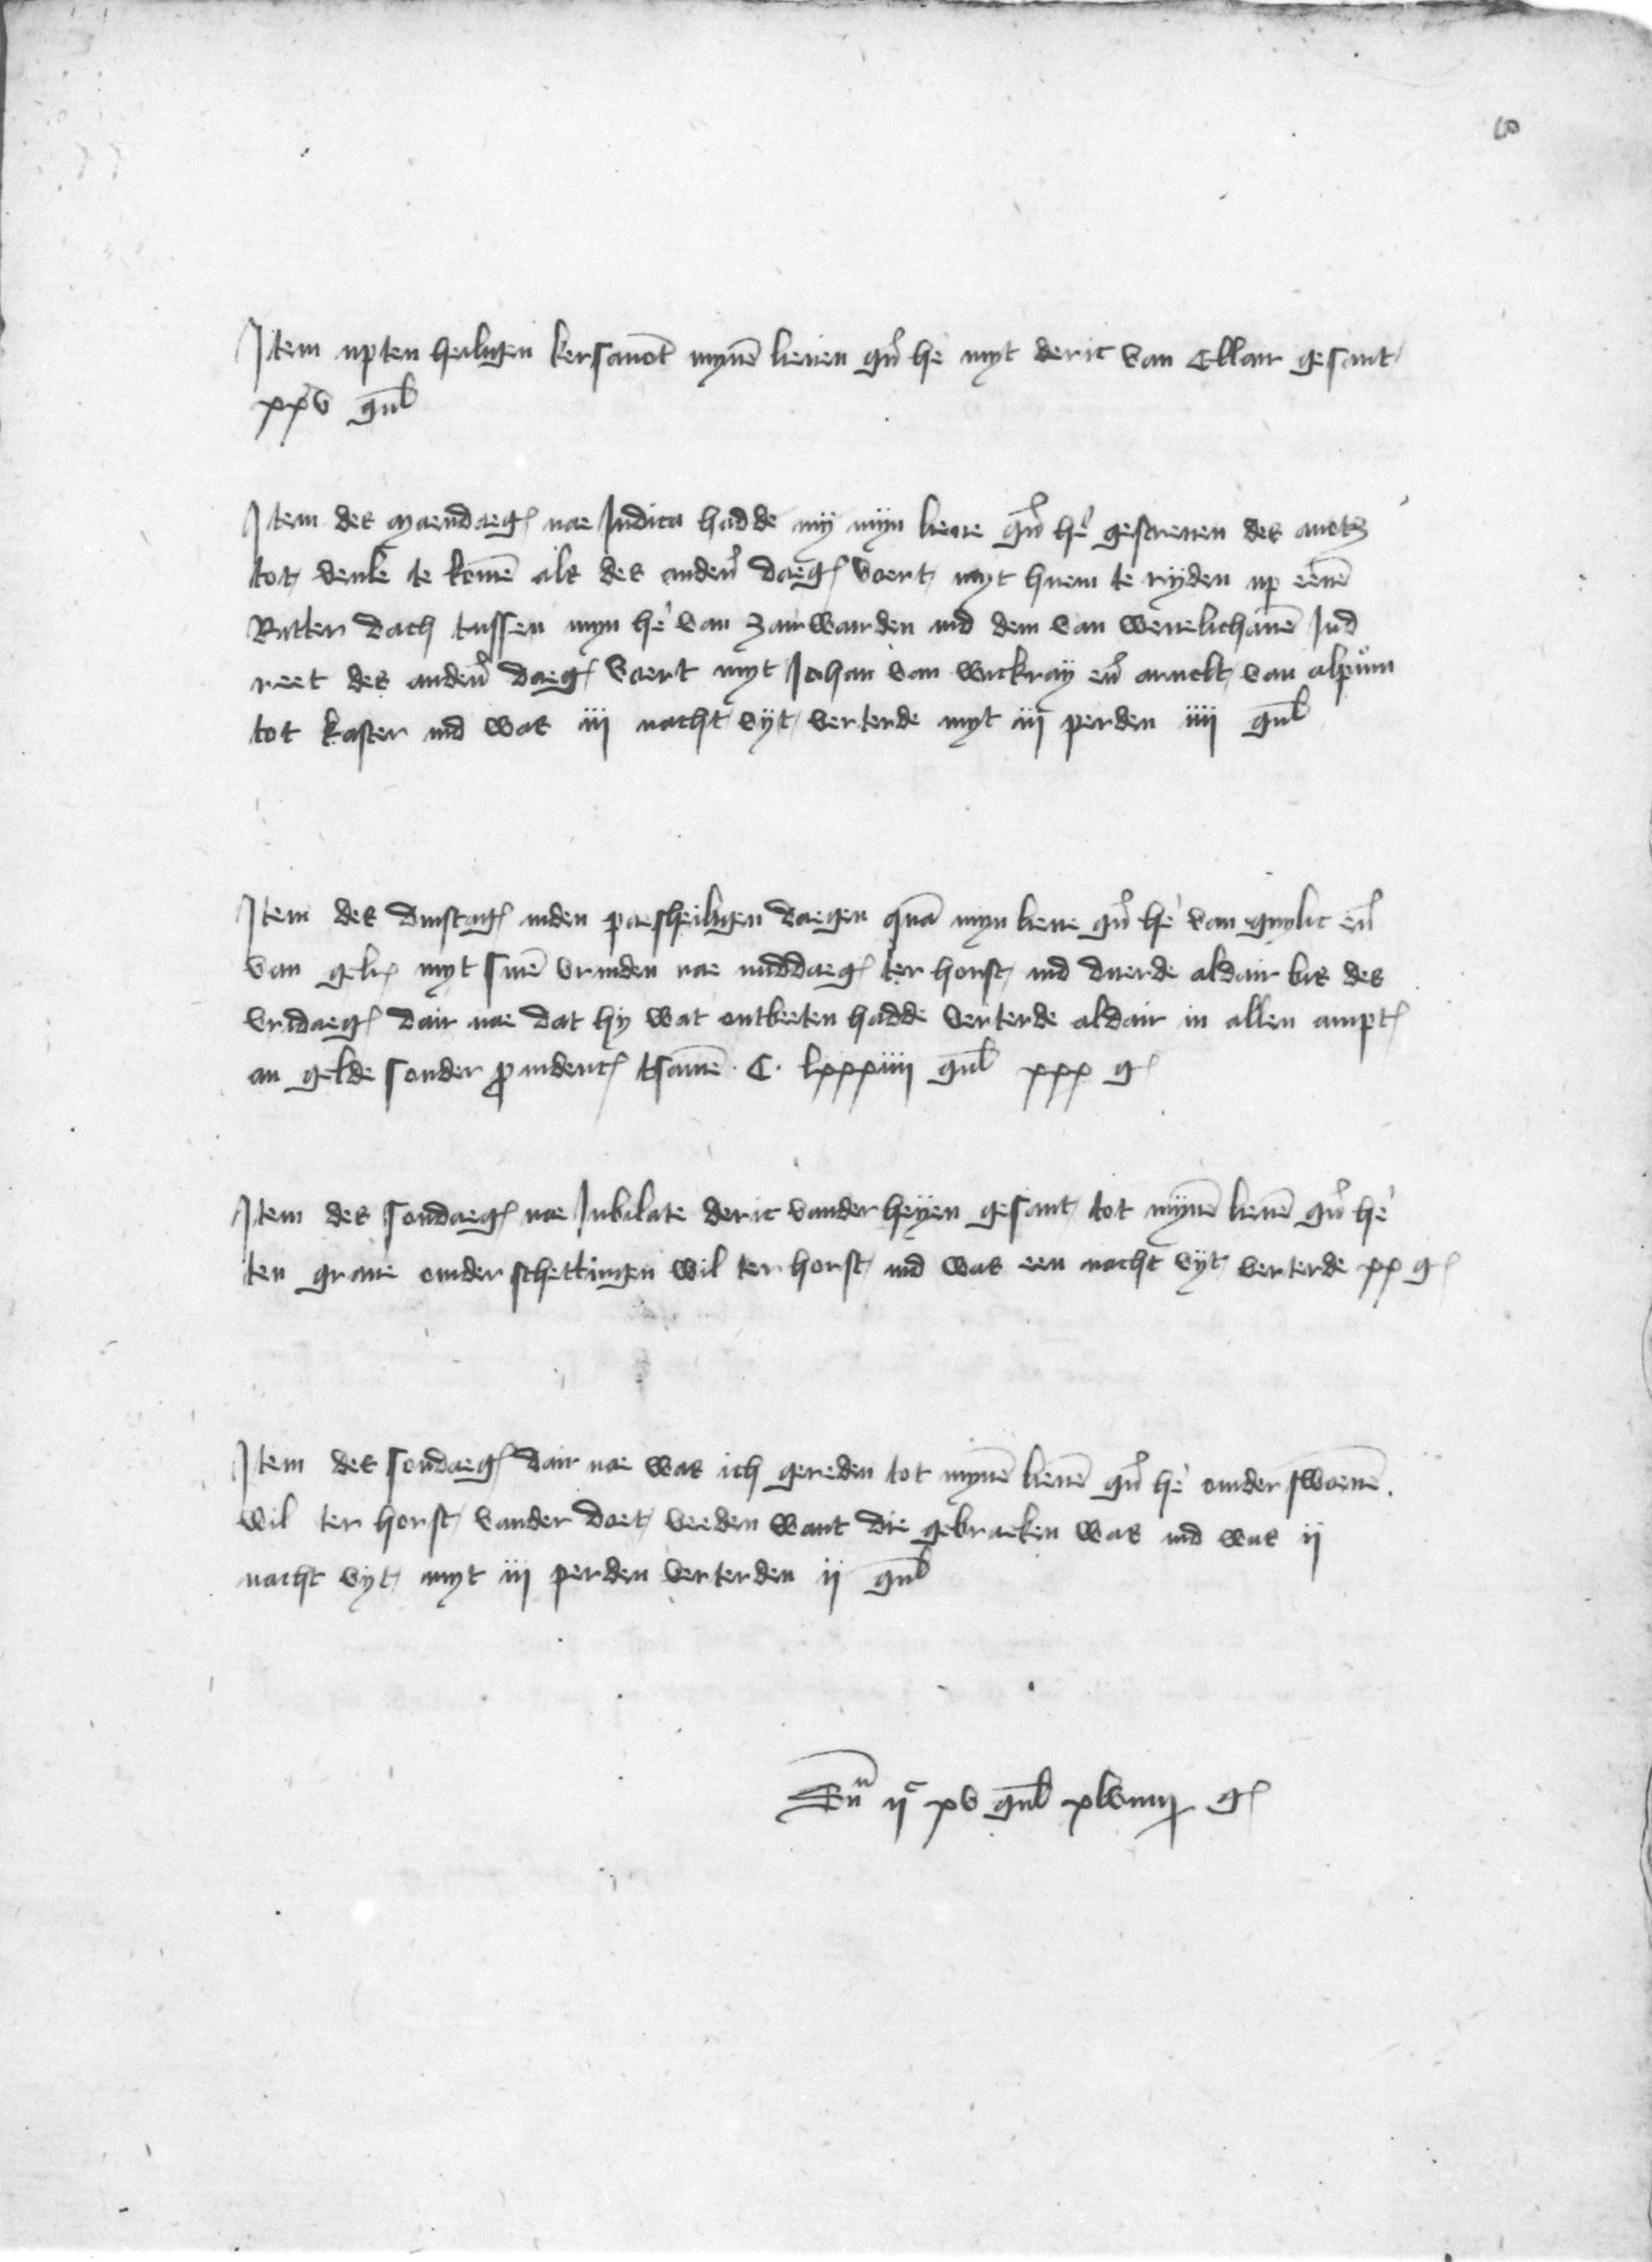 Item upten heiligen kersavont mynē lieven gn̄ hē myt deric van Ellar gesant
xxv gul̄
Item des maendaegs nae Judica hadde my myn lieve gn̄ hē gescreven des avotz
tot venle te komē als des anderē daegs voert myt huem te ryden up eenē
Ritter dach tussen myn hē van Zairwarden ind dem van wevelichavē Ind
reet des anderē daegs voert myt Johan van wickray en̄ arnolt van alpům
tot kaster ind was iii nacht vyt verterde myt iii perden iiii gul̄
Item des dinstags inden paesheiligen daegen quā myn lieve gn̄ hē van guylic en̄
van gelr myt sinē vrinden nae middaegs ter horst ind duerde aldair bis des
vridaegs dair nae dat hy wat ontbeeten hadde verterde aldair in allen ampts
an gelde sonder pvidencs tsamē C lxxxiiii gul̄ xxx gs
Item des sondaegs nae Jubilate deric vander heyen gesant tot mynē lievē gn̄ hē
ten grave omder schettingen wil ter horst ind was een nacht vyt verterde xx gs
Item des sondaegs dair nae was ich gereden tot mynē lievē gn̄ hē omder swoenē
wil ter horst vander doet veeden want die gebraeken was ind was ii
nacht vyt myt iii perden verterden ii gul̄
Sūᵃ iiᶜ xv gul̄ gs